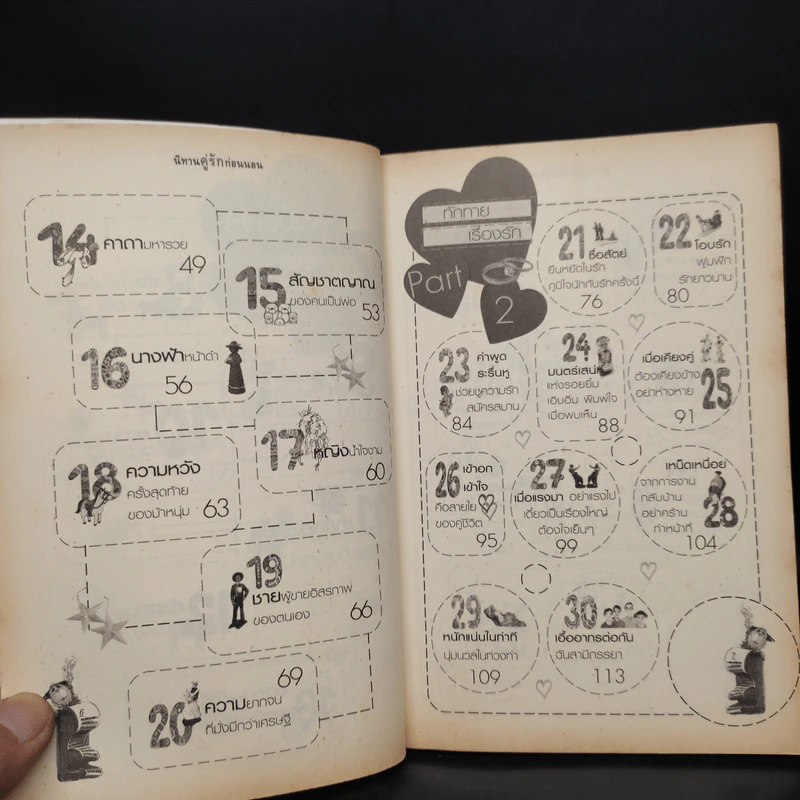 นิทานคู่รักก่อนนอน
14 คาถามหารวย
49
15 สัญชาตญาณ
ของคนเป็นพ่อ 53
16 นางฟ้าหน้าดำ
56
17 หญิงน้ำใจงาม
60
18 ความหวัง
ครั้งสุดท้าย
ของม้าหนุ่ม 63
19
ชายผู้ขายอิสรภาพ
ของตนเอง 66
69
20 ความยากจน
ที่มั่งมีกว่าเศรษฐี
6
ทักทาย
เรื่องรัก
Part
2
21 ซื่อสัตย์
ยืนหยัดในรัก
ภูมิใจนักกับรักครั้งนี้
76
22 โอบรัก
ฟูมฟัก
รักยาวนาน
80
23 คำพูด
ระรื่นหู
ช่วยชูความรัก
สมัครสมาน
84
24
มนตร์เสน่ห์
แห่งรอยยิ้ม
เอิบอิ่ม พิมพ์ใจ
เมื่อพบเห็น
88
เมื่อเคียงคู่
ต้องเคียงข้าง
อย่าห่างหาย 25
91
26 เข้าอก
เข้าใจ
คือสายใย
ของคู่ชีวิต
95
27
เมื่อแรงมา อย่าแรงไป
เดี๋ยวเป็นเรื่องใหญ่
ต้องใจเย็นๆ
99
เหน็ดเหนื่อย
จากการงาน
กลับบ้าน
อย่าคร้าน 28
ทำหน้าที่
104
29
หนักแน่นในท่าที
นุ่มนวลในท่วงท่า
109
30
เอื้ออาทรต่อกัน
ฉันสามีภรรยา
113
7